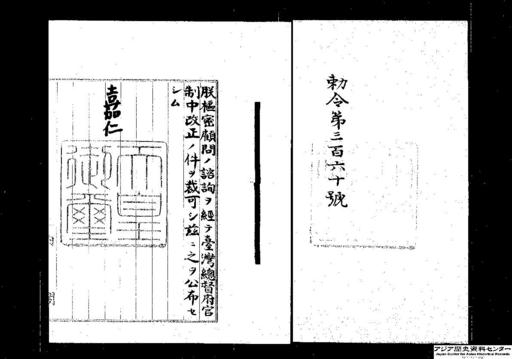 勅令第三百六十號
朕樞密顧問ノ諮詢ヲ經テ臺灣總督府官
制中改正ノ件ヲ裁可シ茲ニ之ヲ公布セ
シム
嘉仁
天皇
御璽
アジア歴史資料センター
Japan Center for Asian Historical Records